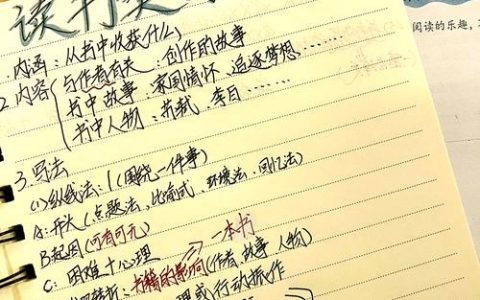 读书类
阅读的乐趣,
1.内涵:从书中收获什么
2.内容 与作者有关:创作的故事
书中故事:家国情怀、追逐梦想……
书中人物:苏轼、李白……
3.写法
(1)纵线法:1(围绕一件事)
A:开头(点题法、比喻式、环境法、回忆法)
B起因(可有可无)
一本书
C:困难+心理
转折:书籍的影响(作者、故事、人物)
理或行动振作